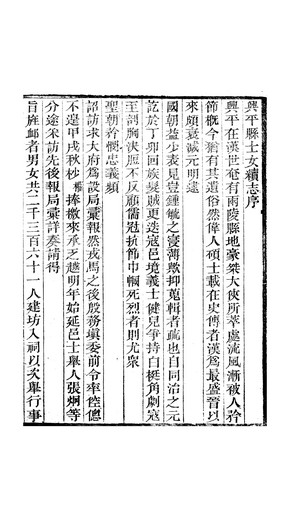 興平縣士女續志序
興平在漢世奄有兩陵縣地豪桀大俠所萃處流風漸被人矜
節概今猶有其遺俗然偉人碩士載在史傳者漢為最盛晉以
來頗衰滅元明逮
國朝益少表見豈鍾毓之寖薄歟抑蒐輯者疏也自同治之元
訖於丁卯回族髮賊更迭寇邑境義士健兒爭持白梃角劇寇
至剖胸決脰不反顧儒冠抗節巾幗死烈者則尤衆
聖朝矜憫忠義頻
詔訪求大府為設局彙報然戎馬之後殷務填委前令率倥傯
不遑甲戌秋杪 捧檄來承乏越明年始延邑士舉人張炯等
分途采訪先後報局彙詳奏請得
旨旌卹者男女共二千三百六十一人建坊入祠以次舉行事